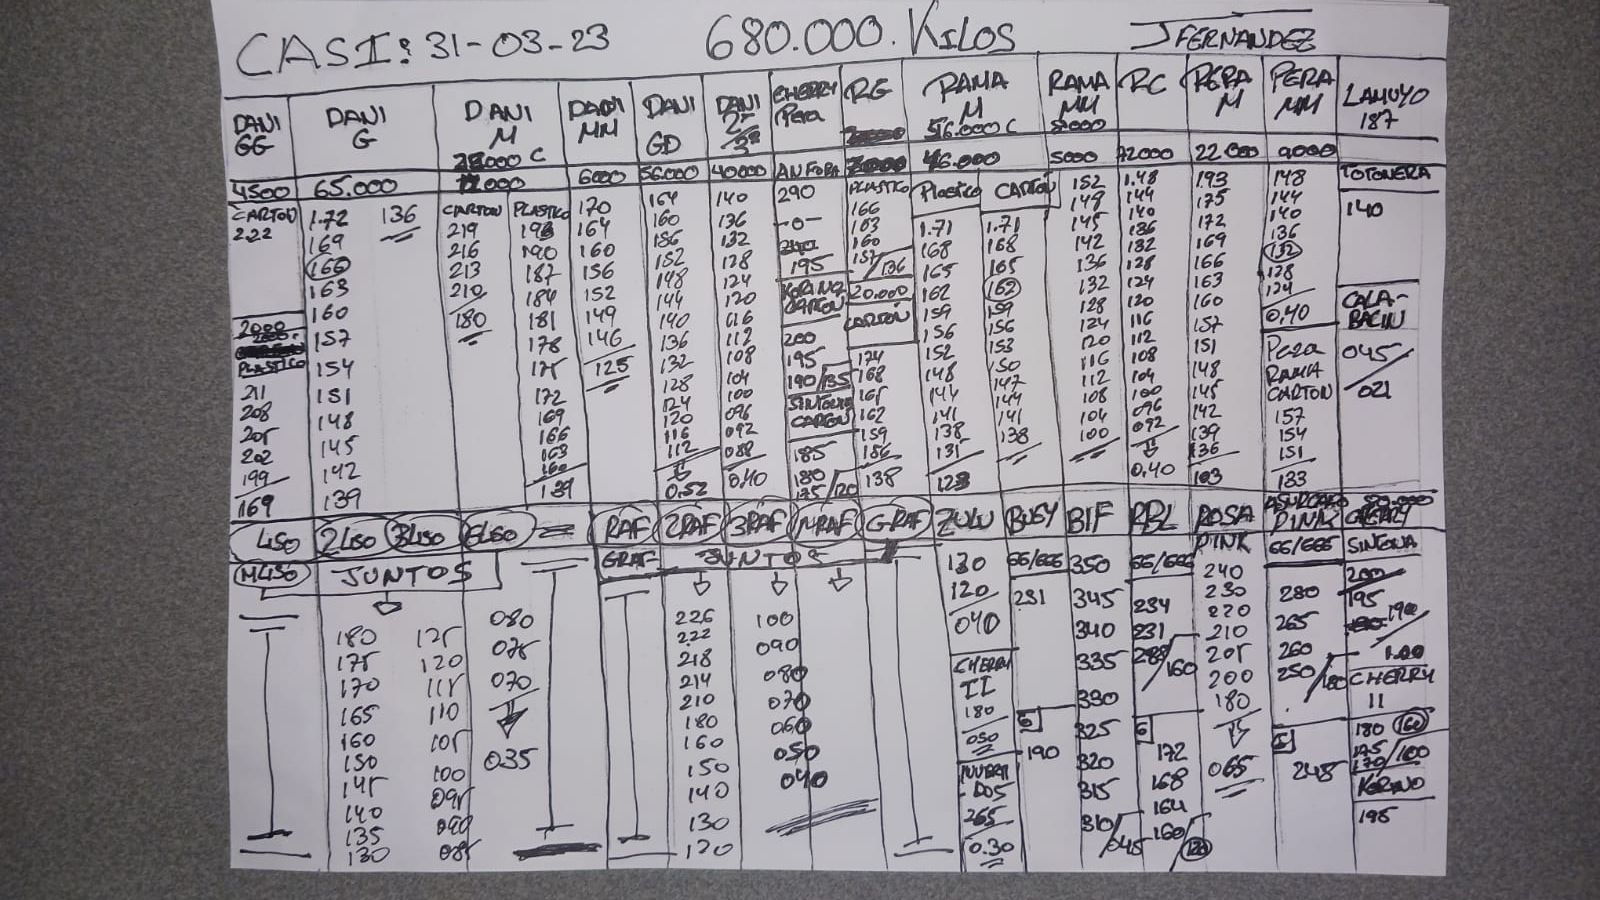 CASI: 31-03-23 680.000. Kilos J FERNANDEZ
DANI GG
4500
CARTON
222
2000
PLASTICO
211
208
205
202
199
169
DANI G
65.000
1.72 136
169
166
163
160
157
154
151
148
145
142
139
DANI M
000 C
000
CARTON
219
216
213
210
180
PLASTICO
193
190
187
184
181
178
175
172
169
166
163
160
139
DANI MM
6000
170
164
160
156
152
149
146
125
DANI GD
56000
164
160
156
152
148
144
140
136
132
128
124
120
116
112
0.52
DANI
40000
140
136
132
128
124
120
116
112
108
104
100
096
092
088
0.40
CHERRY Pera
ANFORA
290
-0-
195
KORINO CARTON
200
195
190/135
SINTONIA CARTON
185
180
175/120
RG
PLASTICO
166
163
160
157/136
20.000
CARTON
174
168
165
162
159
156
138
RAMA M
56.000 C
46.000
Plastico
1.71
168
165
162
159
156
152
148
144
141
138
131
123
CARTON
1.71
168
165
162
159
156
153
150
147
144
141
138
RAMA MM
5000
152
149
145
142
136
132
128
124
120
116
112
108
104
100
RC
72000
1.48
144
140
136
132
128
124
120
116
112
108
104
100
096
092
0.40
PERA M
22000
193
175
172
169
166
163
160
157
151
148
145
142
139
136
103
PERA MM
9000
148
144
140
136
132
128
124
0.40
Pera RAMA CARTON
157
154
151
133
LAMUYO
187
TOTONERA
140
CALABACIN
045/021
LISO 2LISO 3LISO GLISO
MLISO JUNTOS
180 125
175 120
170 115
165 110
160 105
150 100
145 095
140 090
135 085
130
080
075
070
035
RAF 2RAF 3RAF MRAF GRAF
GRAF JUNTOS
226
222
218
214
210
180
160
150
140
130
120
100
090
080
070
060
050
040
ZULU
130
120
040
CHERRY II
180
050
265
0.30
BUSY
66/666
231
G
190
BIF
350
345
340
335
330
325
320
315
310/045
RBL
66/666
234
231
228/160
G
172
168
164
160/120
ROSA PINK
240
230
220
210
205
200
180
065
ASURCADO PINK
66/666
280
265
260
250/180
G
245
CHERRY
SINTONIA
200
195
190
1.00
CHERRY II
180 160
175
170/100
KORINO
195